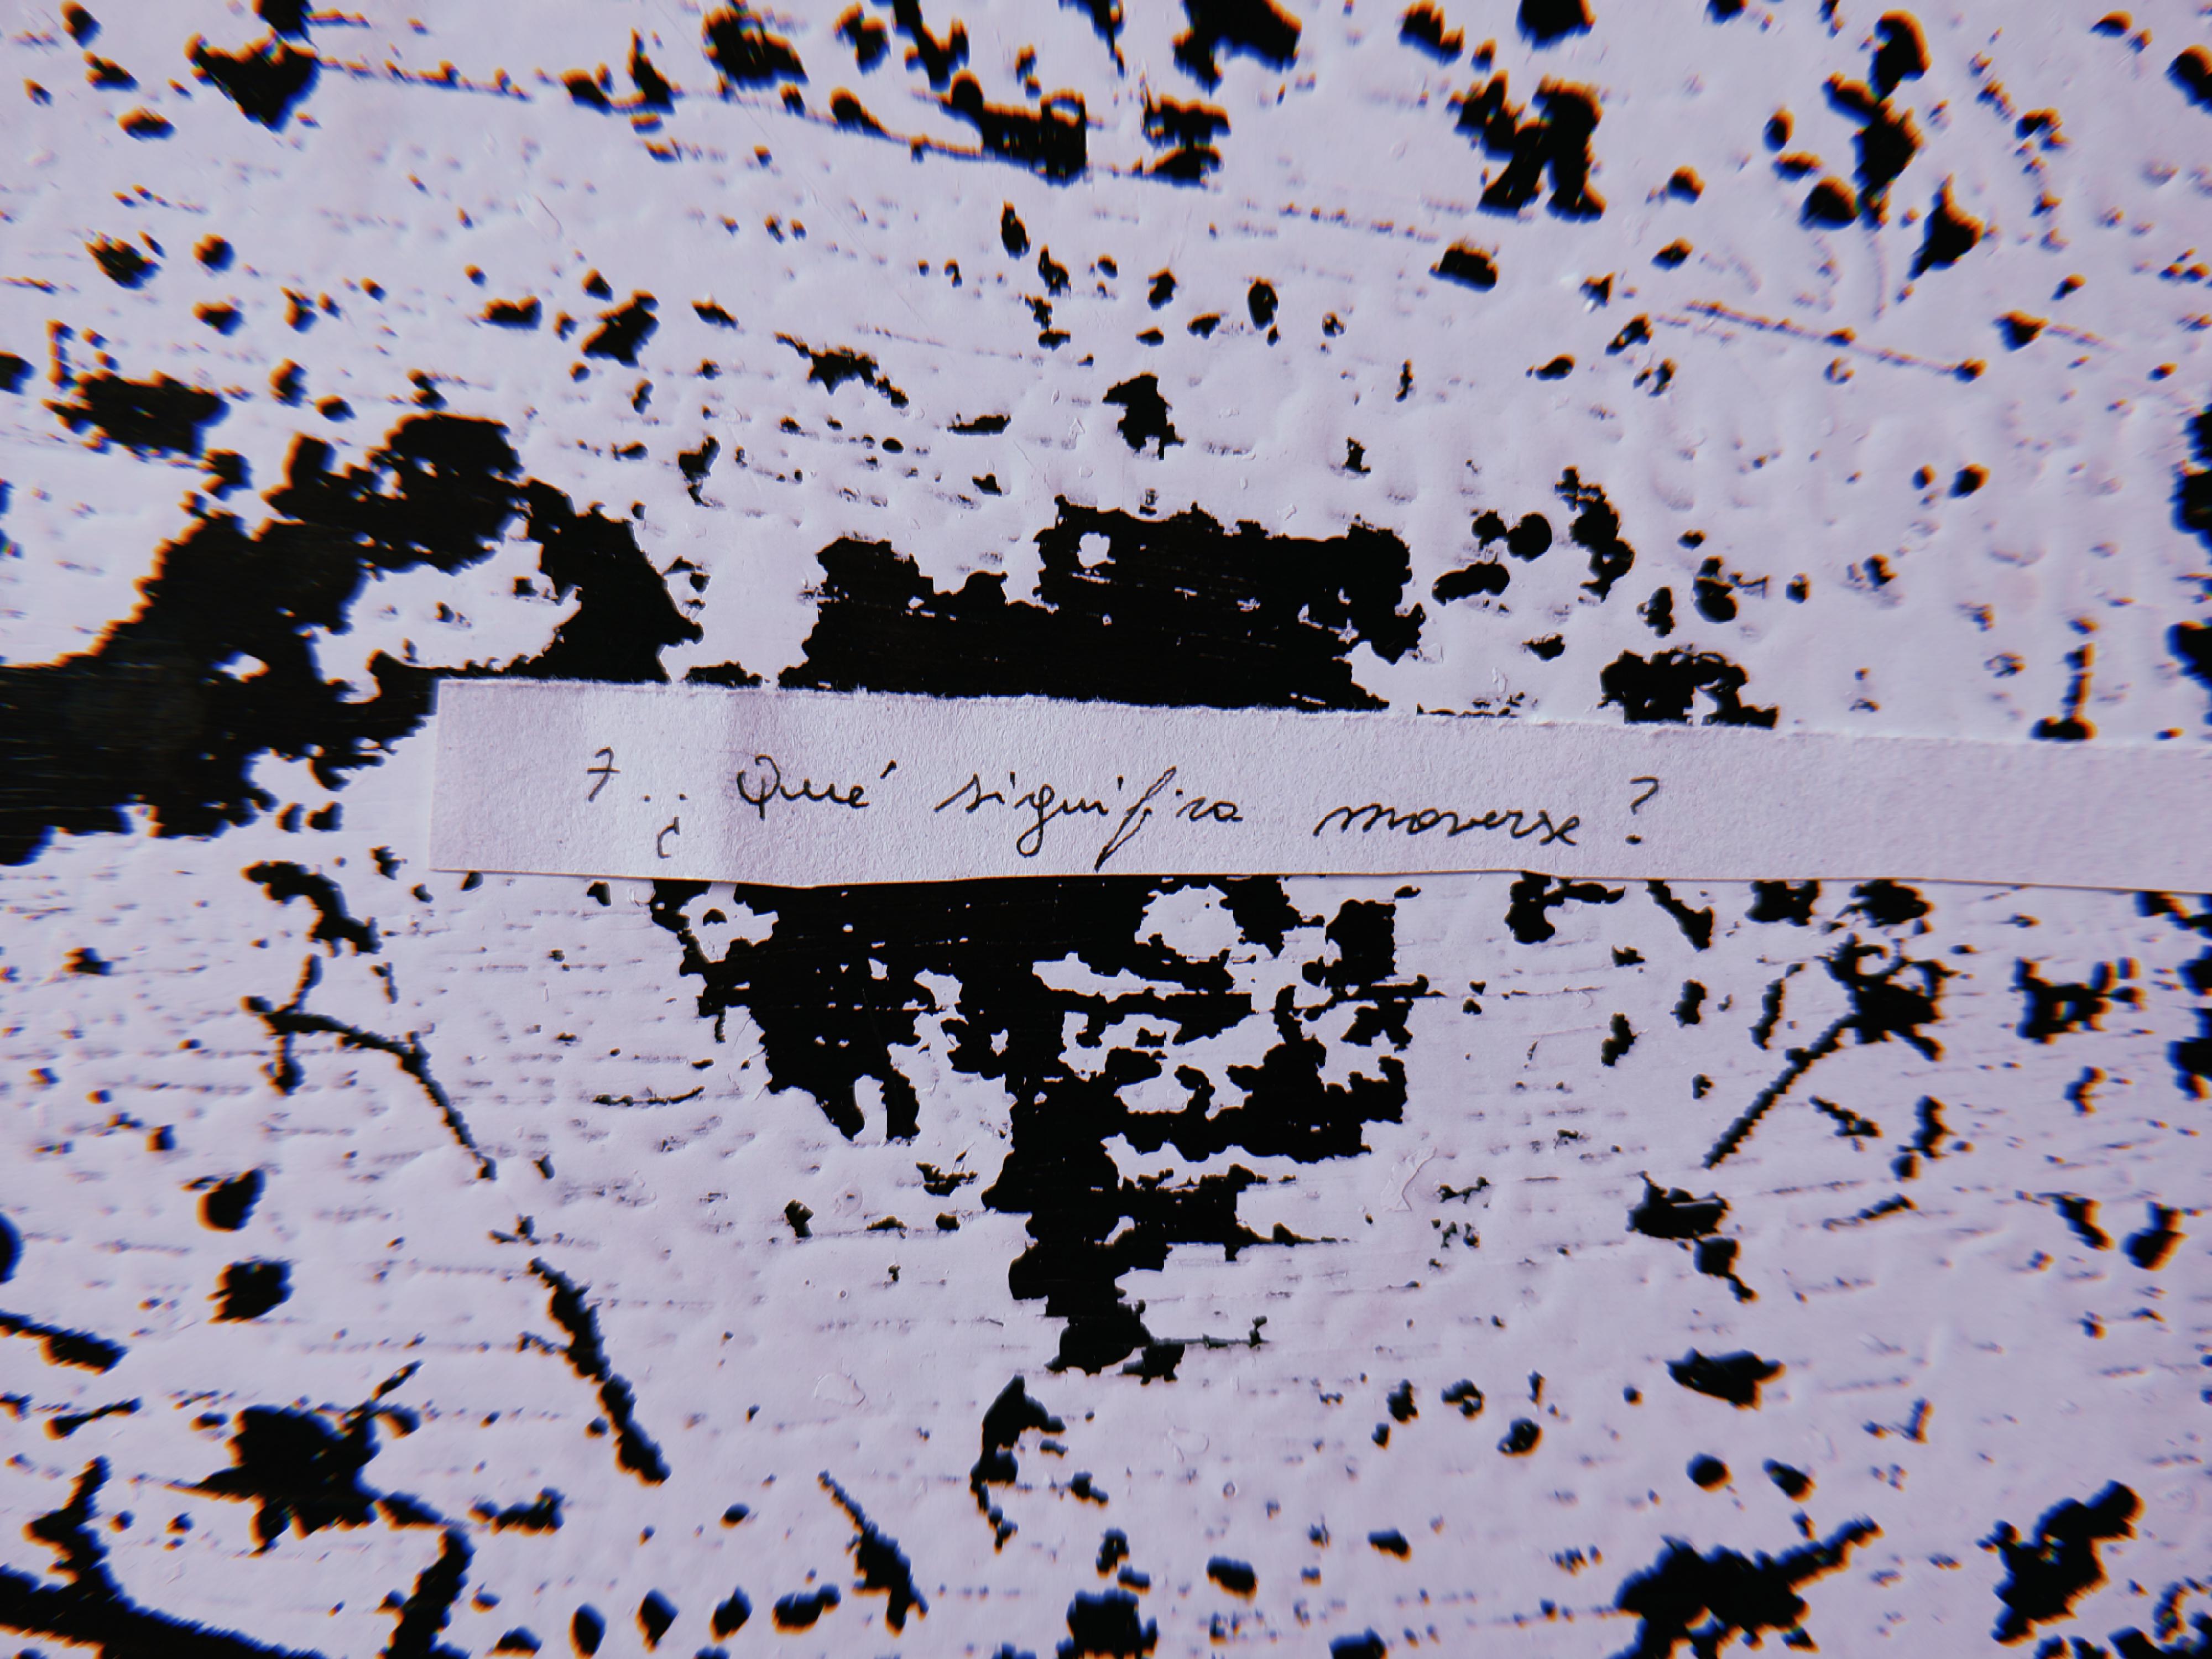 7.. ¿Qué significa moverse?